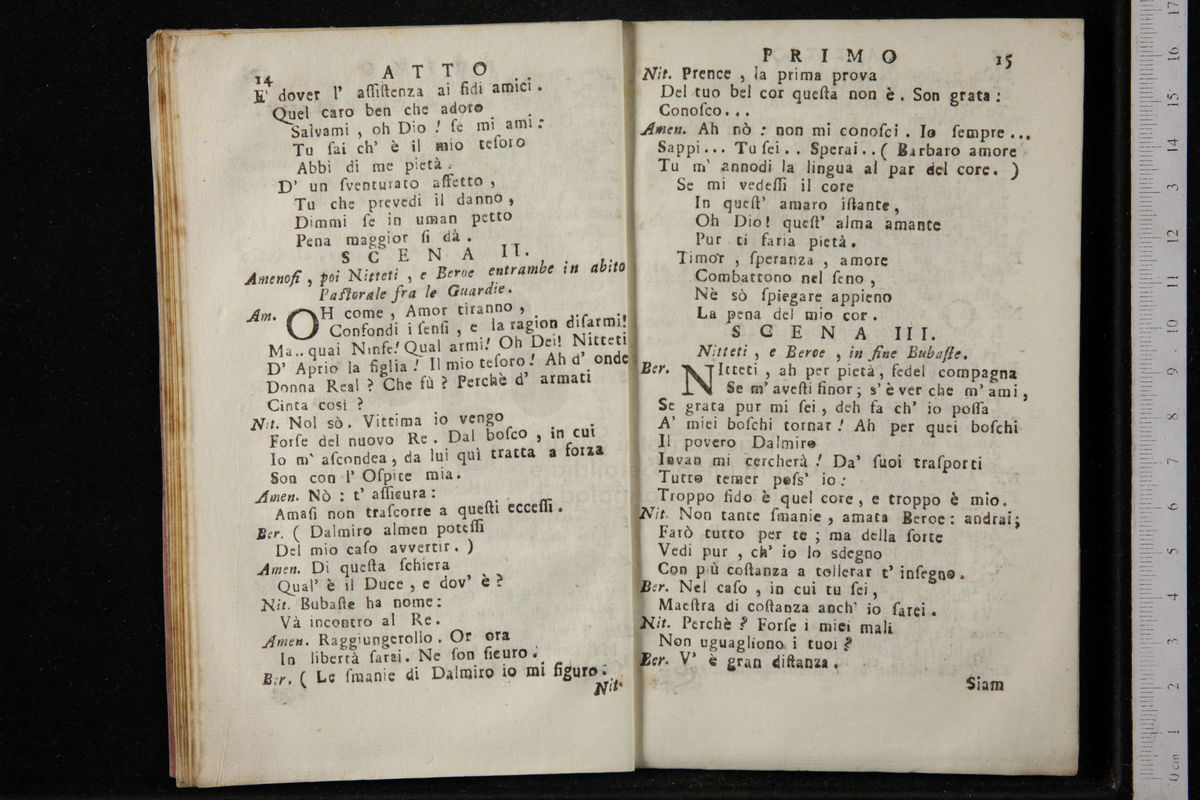 14
A T T O
E' dover l' aſſiſtenza ai fidi amici.
Quel caro ben che adoro
Salvami , oh Dio ! ſe mi ami :
Tu ſai ch' è il mio teſoro
Abbi di me pietà .
D' un ſventurato affetto ,
Tu che prevedi il danno ,
Dimmi ſe in uman petto
Pena maggior ſi dà .
S C E N A II.
Amenofi , poi Nitteti , e Beroe entrambe in abito
Paſtorale fra le Guardie.
Am. OH come , Amor tiranno ,
Confondi i ſenſi , e la ragion diſarmi!
Ma.. quai Ninfe! Qual armi! Oh Dei! Nitteti
D' Aprio la figlia ! Il mio teſoro ! Ah d' onde
Donna Real ? Che fù ? Perchè d' armati
Cinta così ?
Nit. Nol sò . Vittima io vengo
Forſe del nuovo Re . Dal boſco , in cui
Io m' aſcondea , da lui quì tratta a forza
Son con l' Oſpite mia .
Amen. Nò : t' aſſicura :
Amaſi non traſcorre a queſti ecceſſi .
Ber. ( Dalmiro almen poteſſi
Del mio caſo avvertir . )
Amen. Di queſta ſchiera
Qual' è il Duce , e dov' è ?
Nit. Bubaſte ha nome :
Và incontro al Re .
Amen. Raggiungerollo . Or ora
In libertà ſarai. Ne ſon ſicuro .
Ber. ( Le ſmanie di Dalmiro io mi figuro .
Nit.
P R I M O
15
Nit. Prence , la prima prova
Del tuo bel cor queſta non è . Son grata :
Conoſco...
Amen. Ah nò : non mi conoſci . Io ſempre ...
Sappi ... Tu ſei . . Sperai . . ( Barbaro amore
Tu m' annodi la lingua al par del core. )
Se mi vedeſſi il core
In queſt' amaro iſtante ,
Oh Dio! queſt' alma amante
Pur ti faria pietà .
Timor , ſperanza , amore
Combattono nel ſeno ,
Nè sò ſpiegare appieno
La pena del mio cor .
S C E N A III.
Nitteti , e Beroe , in fine Bubaſte.
Ber. NItteti , ah per pietà , fedel compagna
Se m' aveſti finor ; s' è ver che m' ami ,
Se grata pur mi ſei , deh fa ch' io poſſa
A' miei boſchi tornar ! Ah per quei boſchi
Il povero Dalmiro
Invan mi cercherà ! Da' ſuoi traſporti
Tutto temer poſs' io :
Troppo fido è quel core , e troppo è mio .
Nit. Non tante ſmanie , amata Beroe : andrai ;
Farò tutto per te ; ma della ſorte
Vedi pur , ch' io lo sdegno
Con più coſtanza a tollerar t' inſegno .
Ber. Nel caſo , in cui tu ſei ,
Maeſtra di coſtanza anch' io ſarei .
Nit. Perchè ? Forſe i miei mali
Non uguagliono i tuoi ?
Ber. V' è gran diſtanza .
Siam
0 cm 1 2 3 4 5 6 7 8 9 10 11 12 13 14 15 16 17